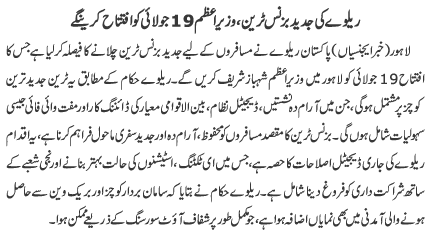 ریلوے کی جدید بزنس ٹرین، وزیراعظم 19 جولائی کو افتتاح کرینگے
لاہور (خبر ایجنسیاں) پاکستان ریلوے نے مسافروں کے لیے جدید بزنس ٹرین چلانے کا فیصلہ کر لیا ہے جس کا
افتتاح 19 جولائی کو لاہور میں وزیراعظم شہباز شریف کریں گے۔ ریلوے حکام کے مطابق یہ ٹرین جدید ترین
کوچز پر مشتمل ہوگی، جن میں آرام دہ نشستیں، ڈیجیٹل نظام، بین الاقوامی معیار کی ڈائننگ کار اور مفت وائی فائی جیسی
سہولیات شامل ہوں گی۔ بزنس ٹرین کا مقصد مسافروں کو محفوظ، آرام دہ اور جدید سفری ماحول فراہم کرنا ہے، یہ اقدام
ریلوے کی جاری ڈیجیٹل اصلاحات کا حصہ ہے، جس میں ای ٹکٹنگ، اسٹیشنوں کی حالت بہتر بنانے اور نجی شعبے کے
ساتھ شراکت داری کو فروغ دینا شامل ہے۔ ریلوے حکام نے بتایا کہ سامان بردار کوچز اور بریک وین سے حاصل
ہونے والی آمدنی میں بھی نمایاں اضافہ ہوا ہے، جو مکمل طور پر شفاف آؤٹ سورسنگ کے ذریعے ممکن ہوا۔